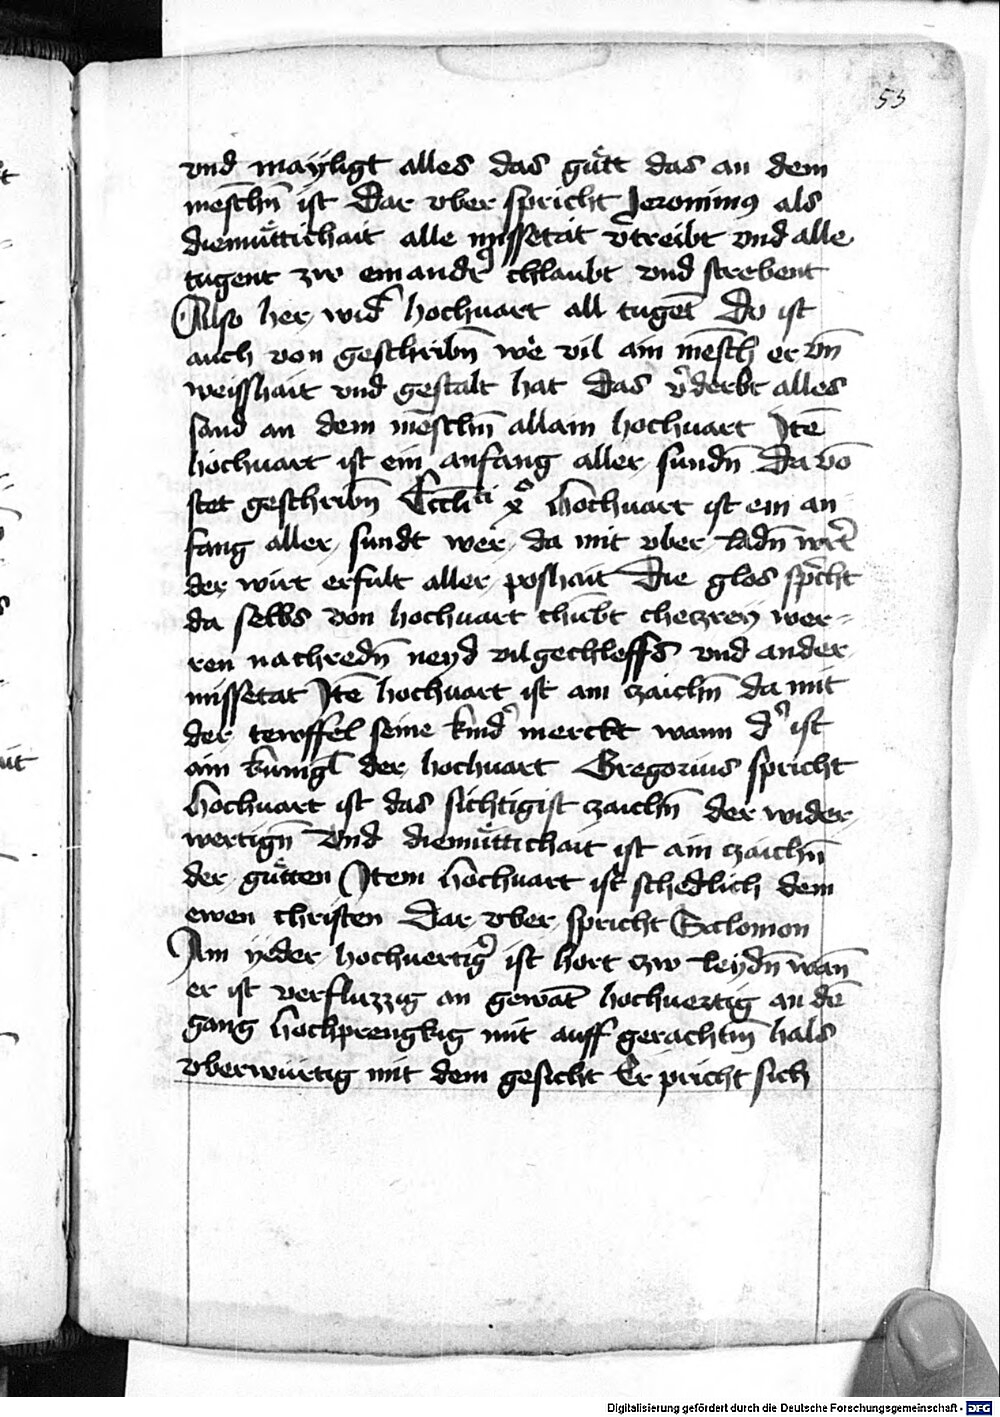 53
vnd mayligt alles das gůtt das an dem
mēschñ ist Dar vber spricht Jeronimꝰ als
diemüttichait alle missetät v̓treibt vnd alle
tugent zw einander chlaubt vnd strebent
Also her wid̓ hochuart all tugēt Do ist
auch von geschribñ we vil ain mēsch er vñ
weisshait vnd gestalt hat Das v̓derbt alles
sand an dem mēschñ allain hochuart Jtē
hochuart ist ein anfang aller sundñ Da vō
stet geschribñ Eccl̄i xͦ hochuart ist ein an
fang aller sundt wer da mit vber ladñ wirt
der wirt erfült aller poshait Die glos spͥcht
da selbs von hochuart chūbt checzrey wer-
ren nachredñ neyd vilgechleffs vnd ander
missetat Jtē hochuart ist ain zaichñ da mit
der tewffel seine kind̓ merckt wann d̓ ist
ain künigk der hochuart Gregorius spricht
hochuart ist das sichtigist zaichñ der wider
wertigñ vnd diemüttichait ist ain zaichñ
der gůtten Jtem hochuart ist schedlich dem
ewen christen Dar vber spricht Salomon
Ain yeder hochuertig̓ ist hort zw leydñ wañ
er ist verfluzzig an gewāt hochuertig an dē
gang hochprengkig mit auff gerachtm̄ hals
vberwürtig mit dem gesicht Er pricht sich
Digitalisierung gefördert durch die Deutsche Forschungsgemeinschaft - DFG